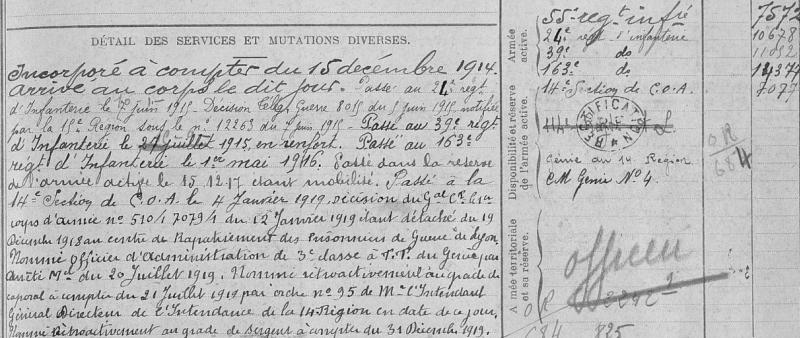 DÉTAIL DES SERVICES ET MUTATIONS DIVERSES.
Incorporé à compter du 15 décembre 1914.
arrivé au corps le dit jour. Passé au 24e régt
d'Infanterie le juin 1915. Décision Guerre 8015 du 5 juin 1915 notifiée
par la 15e Région sous le n° 12263 du juin 1915 - Passé au 39e régt
d'Infanterie le juillet 1915, en renfort. Passé au 163e
régt d'Infanterie le 1er mai 1916. Passé dans la réserve
de l'armée active le 15.12.17 étant mobilisé. Passé à la
14e Section de C.O.A. le 4 Janvier 1919. Décision du Gal Ct
corps d'armée n° 510/1 7079/1 du 12 Janvier 1919 étant détaché du 19
Décembre 1918 au centre de Rapatriement des Prisonniers de Guerre de Lyon.
Nommé Officier d'Administration de 3e classe à T.T. du Génie par
Arrêté Mel du 20 Juillet 1919. Nommé rétroactivement au grade de
caporal à compter du 21 Juillet 1917 par ordre n° 95 de Mr l'Intendant
Général Directeur de l'Intendance de la 14 Région en date de ce jour.
Nommé rétroactivement au grade de sergent à compter du 31 Décembre 1917.
Armée active.
55e regt infie 7572
24e regt d'infanterie 10678
39e do
163e do 14374
14e Section de C.O.A. 7077
Disponibilité et réserve de l'armée active.
RECTIFICATION
OR
684
Génie au 14 Region
CM Genie N° 4.
Armée territoriale et sa réserve.
officier
OR
684 825